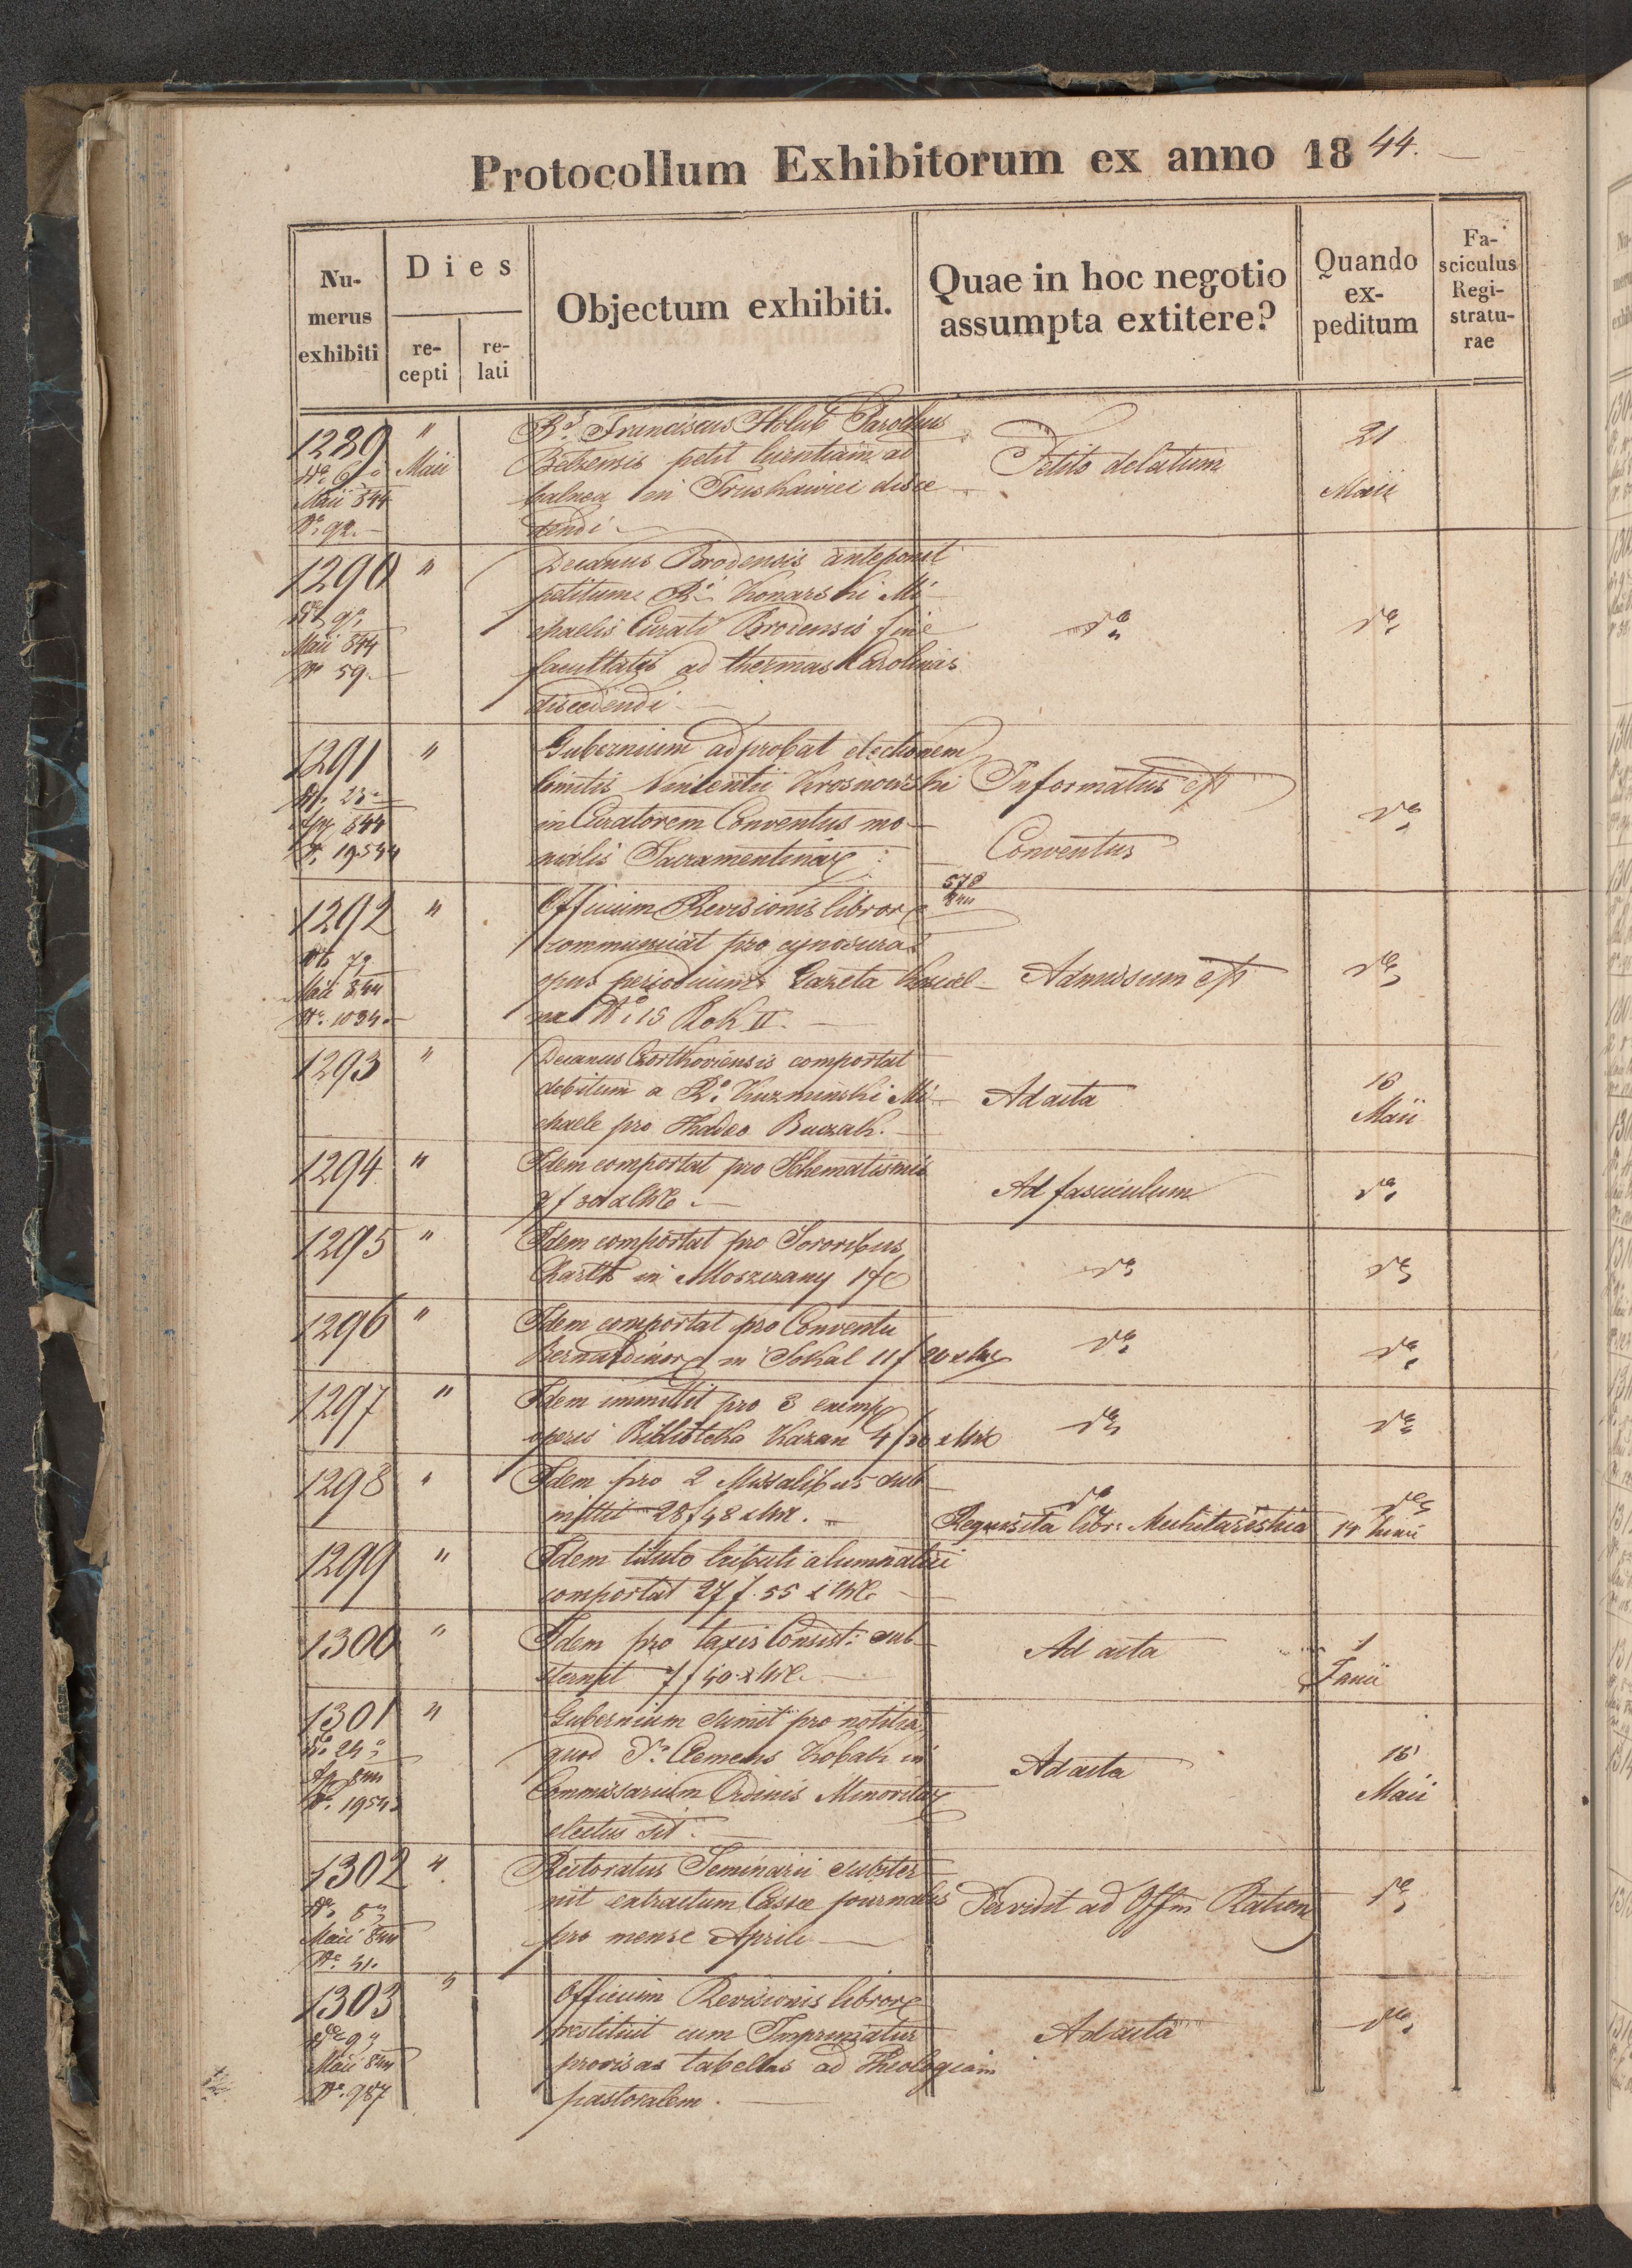 Protocollum Exhibitorum ex anno 1844.
Nu-
merus
exhibiti
Dies
re-
cepti
re-
lati
Objectum exhibiti.
Quae in hoc negotio
assumpta extitere?
Quando
ex-
peditum
Fa-
sciculus
Regi-
stratu-
rae
1289 "
Maii
Maii 844
No. 92.
Rd. Franciscus Holub Parochus
Belzensis petit licentiam ad
balnea in Truskawiec disce
dendi
Petito delatum
21
Maii
1290 "
Maii 844
No 59.
Decanus Brodensis anteponit
petitum Ri Konarski Mi
chaelis Curati Brodensis fine
facultatis ad thermas Carolinas
discedendi
do
do
1291 "
Apr 844
No. 19544
Gubernium adprobat electionem
Comitis Vincentii Krosnowski
in Curatorem Conventus mo-
nialis Sacramentinar:
Informatus est
Conventus
do
1292 "
Maii 844
No. 1034.
Officium Revisionis libror
communicat pro cynosura
opus periodicum Gazeta Koscie-
na No 15 Rok II.
578
844
Admissum est
do
1293 "
Decanus Czortkoviensis comportat
debitum a Ro. Kuzminski Mi
chaele pro Thadeo Buczak.
Ad acta
16
Maii
1294 "
Idem comportat pro Schematismis
Ad fasciculum
do
1295 "
Idem comportat pro Sororibus
Charit in Moszczany
do
do
1296 "
Idem comportat pro Conventu
Bernardinor in Sokal 11 f 20 x
do
do
1297 "
Idem immittit pro 3 exemp
operis Biblioteka Kazan 4 f
do
do
1298 "
Idem pro 2 Missalibus sub
mittit 28 f 48 x
do
Requisita libr: Mechitaristica
do
14 Junii
1299 "
Idem titulo tributi alumnatici
comportat 27 f. 55 x
1300 "
Idem pro taxis Consist: sub
sternit 7 f 40 x
Ad acta
1
Junii
1301 "
Apr 844
No. 1954
Gubernium sumit pro notitia
quod P. Clemens Kobak in
Commissarium Ordinis Minoritar
electus sit.
Ad acta
16
Maii
1302 "
Maii 844
No. 41.
Rectoratus Seminarii subster
nit extractum Cassae journalis
pro mense Aprili
Pervidit ad Offm Ration
do
1303 "
Maii 844
No. 987
Officium Revisionis libror
restituit cum Imprimatur
provisas tabellas ad Theologiam
pastoralem.
Ad acta
do